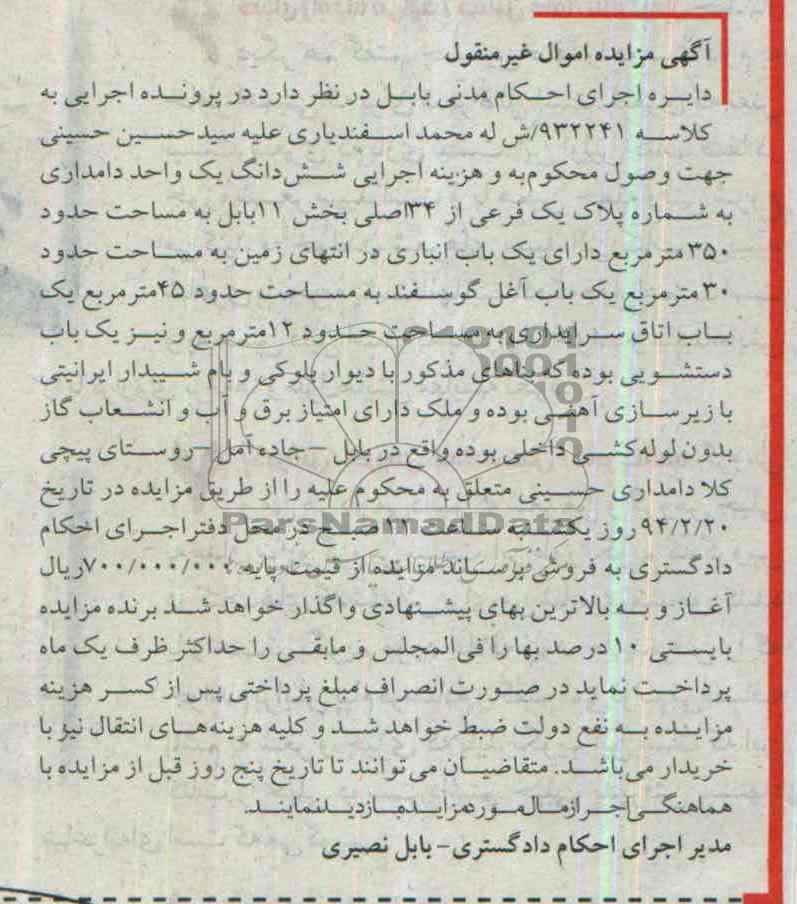 آگهی مزایده اموال غیرمنقول
دایره اجرای احکام مدنی بابل در نظر دارد در پرونده اجرایی به
کلاسه ۹۳۲۲۴۱/ش له محمد اسفندیاری علیه سیدحسین حسینی
جهت وصول محکوم‌به و هزینه اجرایی شش‌دانگ یک واحد دامداری
به شماره پلاک یک فرعی از ۳۴اصلی بخش ۱۱بابل به مساحت حدود
۳۵۰ مترمربع دارای یک باب انباری در انتهای زمین به مساحت حدود
۳۰ مترمربع یک باب آغل گوسفند به مساحت حدود ۴۵مترمربع یک
باب اتاق سرایداری به مساحت حدود ۱۲مترمربع و نیز یک باب
دستشویی بوده که بناهای مذکور با دیوار بلوکی و بام شیبدار ایرانیتی
با زیرسازی آهنی بوده و ملک دارای امتیاز برق و آب و انشعاب گاز
بدون لوله‌کشی داخلی بوده واقع در بابل – جاده آمل – روستای پیچی
کلا دامداری حسینی متعلق به محکوم علیه را از طریق مزایده در تاریخ
۹۴/۲/۲۰ روز یکشنبه ساعت ۱۱ صبح در محل دفتر اجرای احکام
دادگستری به فروش برساند مزایده از قیمت پایه ۷۰۰/۰۰۰/۰۰۰ریال
آغاز و به بالاترین بهای پیشنهادی واگذار خواهد شد برنده مزایده
بایستی ۱۰ درصد بها را فی‌المجلس و مابقی را حداکثر ظرف یک ماه
پرداخت نماید در صورت انصراف مبلغ پرداختی پس از کسر هزینه
مزایده به نفع دولت ضبط خواهد شد و کلیه هزینه‌های انتقال نیز با
خریدار می‌باشد. متقاضیان می‌توانند تا تاریخ پنج روز قبل از مزایده با
هماهنگی اجرا از مال مورد مزایده بازدید نمایند.
مدیر اجرای احکام دادگستری- بابل نصیری
ParsNamadData